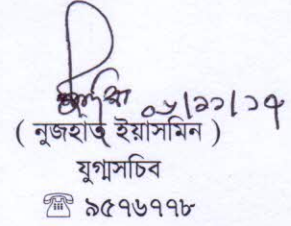 ০৮/১১/১৭
( নুজহাত ইয়াসমিন )
যুগ্মসচিব
☏ ৯৫৭৬৭৭৮